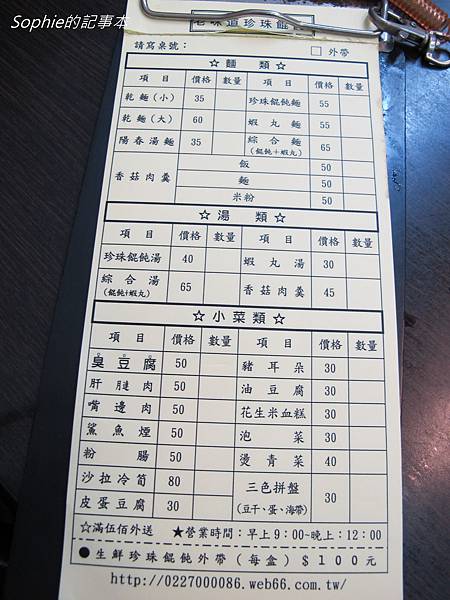 Sophie的記事本
味道珍珠餛飩
請寫桌號： □ 外帶
☆ 麵 類 ☆
項目 價格 數量 項目 價格 數量
乾麵(小) 35 珍珠餛飩麵 55
乾麵(大) 60 蝦丸麵 55
陽春湯麵 35 綜合麵 (餛飩+蝦丸) 65
香菇肉羹 飯 50
麵 50
米粉 50
☆ 湯 類 ☆
項目 價格 數量 項目 價格 數量
珍珠餛飩湯 40 蝦丸湯 30
綜合湯 (餛飩+蝦丸) 65 香菇肉羹 45
☆ 小菜類 ☆
項目 價格 數量 項目 價格 數量
臭豆腐 50 豬耳朵 30
肝膁肉 50 油豆腐 30
嘴邊肉 50 花生米血糕 30
鯊魚煙 50 泡菜 30
粉腸 50 燙青菜 40
沙拉冷筍 80 三色拼盤 (豆干、蛋、海帶) 30
皮蛋豆腐 30
☆滿伍佰外送 ★營業時間：早上9:00~晚上:12:00
●生鮮珍珠餛飩外帶(每盒)$100元
http://0227000086.web66.com.tw/